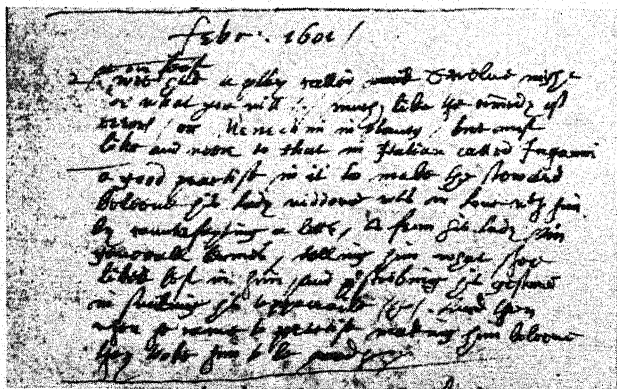 Febr. 1601 /
2 at our feast
wee had a play called mid Twelve night
or what you will / much like the commedy of
errores / or Menechmi in Plautus / but most
like and neere to that in Italian called Inganni
a good practise in it to make the steward
beleeve his Lady widdowe was in Love with him
by counterfayting a letter, as from his Lady in
generall termes, telling him what shee
liked best in him / and prescribing his gesture
in smiling his apparraile &c. / And then
when he came to practise making him beleeve
they tooke him to be mad